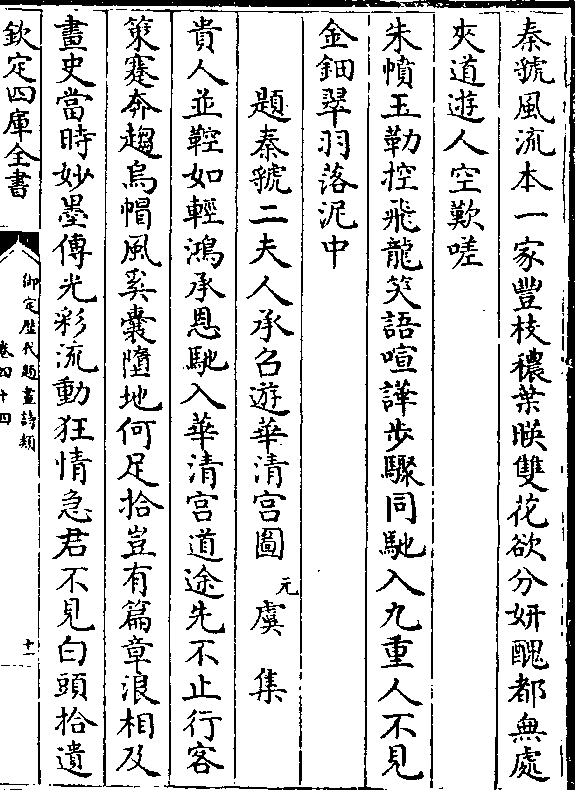 秦虢風流本一家豐枝穠葉暎雙花欲分妍醜都無處
夾道遊人空歎嗟
朱幩玉勒控飛龍笑語喧譁步驟同馳入九重人不見
金鈿翠羽落泥中
題秦虢二夫人承召遊華清宫圖 元 虞集
貴人並鞚如輕鴻承恩馳入華清宫道途先不止行客
策蹇奔趨烏帽風奚囊墮地何足拾豈有篇章浪相及
畫史當時妙墨傳光彩流動狂情急君不見白頭拾遺
欽定四庫全書
御定歴代題畫詩類
卷四十四
十一